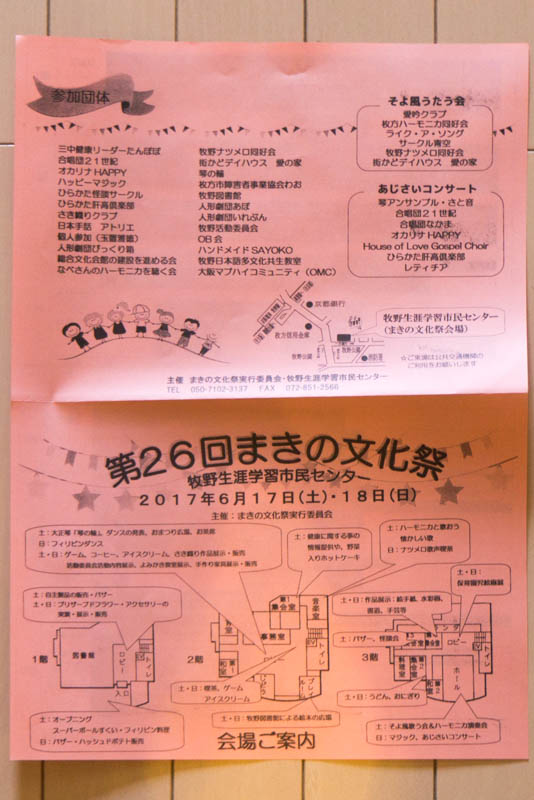 参加団体
三中健康リーダーたんぽぽ
合唱団21世紀
オカリナHAPPY
ハッピーマジック
ひらかた怪談サークル
ひらかた肝高倶楽部
さき織りクラブ
日本手話 アトリエ
個人参加(玉爾雅嬉)
人形劇団びっくり箱
総合文化会館の建設を進める会
なべさんのハーモニカを聴く会
牧野ナツメロ同好会
街かどデイハウス 愛の家
琴の輪
枚方市障害者事業協会わお
牧野図書館
人形劇団あぽ
人形劇団いれぶん
牧野活動委員会
OB会
ハンドメイドSAYOKO
牧野日本語多文化共生教室
大阪マブハイコミュニティ(OMC)
そよ風うたう会
愛吟クラブ
枚方ハーモニカ同好会
ライク・ア・ソング
サークル青空
牧野ナツメロ同好会
街かどデイハウス 愛の家
あじさいコンサート
琴アンサンブル・さと音
合唱団21世紀
合唱団なかま
オカリナHAPPY
House of Love Gospel Choir
ひらかた肝高倶楽部
レティチア
京都銀行
枚方信用金庫
牧野公園
牧野生涯学習市民センター
(まきの文化祭会場)
☆ご来場は公共交通機関の
ご利用をお願いします
主催 まきの文化祭実行委員会・牧野生涯学習市民センター
TEL 050-7102-3137 FAX 072-851-2566
第26回まきの文化祭
牧野生涯学習市民センター
2017年6月17日(土)・18日(日)
主催:まきの文化祭実行委員会
土:大正琴「琴の輪」ダンスの発表、おまつり広場、お茶席
日:フィリピンダンス
土・日:ゲーム、コーヒー、アイスクリーム、さき織り作品展示・販売
活動委員会活動内容展示、よみかき教室展示、手作り家具展示・販売
土・日:健康に関する事の
情報提供や、野菜
入りホットケーキ
土:ハーモニカと歌おう
懐かしい歌
日:ナツメロ歌声喫茶
土・日:
保育園児絵画展
土・日:自主製品の販売・バザー
土・日:プリザーブドフラワー・アクセサリーの
実験・展示・販売
土・日:作品展示:絵手紙、水彩画、
書道、手芸等
土:バザー、怪談会
1階
図書館
ロビー
EV
トイレ
入口
2階
和室
第1
集会室
音楽室
事務室
ロビー
EV
トイレ
3階
ロビー
EV
トイレ
料理室
和室
第2
ホール
土・日:喫茶、ゲーム
アイスクリーム
土・日:うどん、おにぎり
土:オープニング
スーパーボールすくい・フィリピン料理
日:バザー・ハッシュドポテト販売
土・日:牧野図書館による絵本の広場
土:そよ風歌う会&ハーモニカ演奏会
日:マジック、あじさいコンサート
会場ご案内